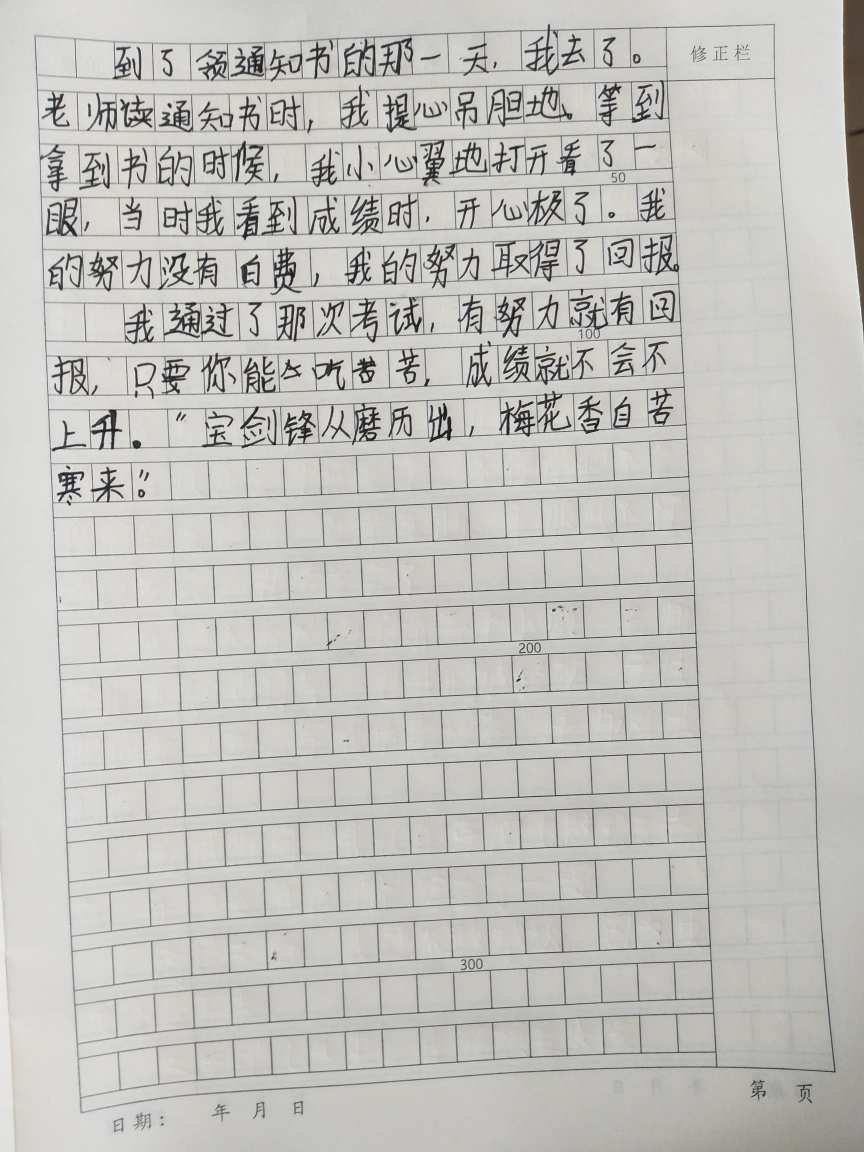 到了领通知书的那一天，我去了。
修正栏
老师读通知书时，我提心吊胆地。等到
拿到书的时候，我小心翼地打开看了一
50
眼，当时我看到成绩时，开心极了。我
的努力没有白费，我的努力取得了回报。
我通过了那次考试，有努力就有回
100
报，只要你能吃苦苦，成绩就不会不
上升。“宝剑锋从磨历出，梅花香自苦
寒来”。
200
300
日期： 年 月 日
第 页